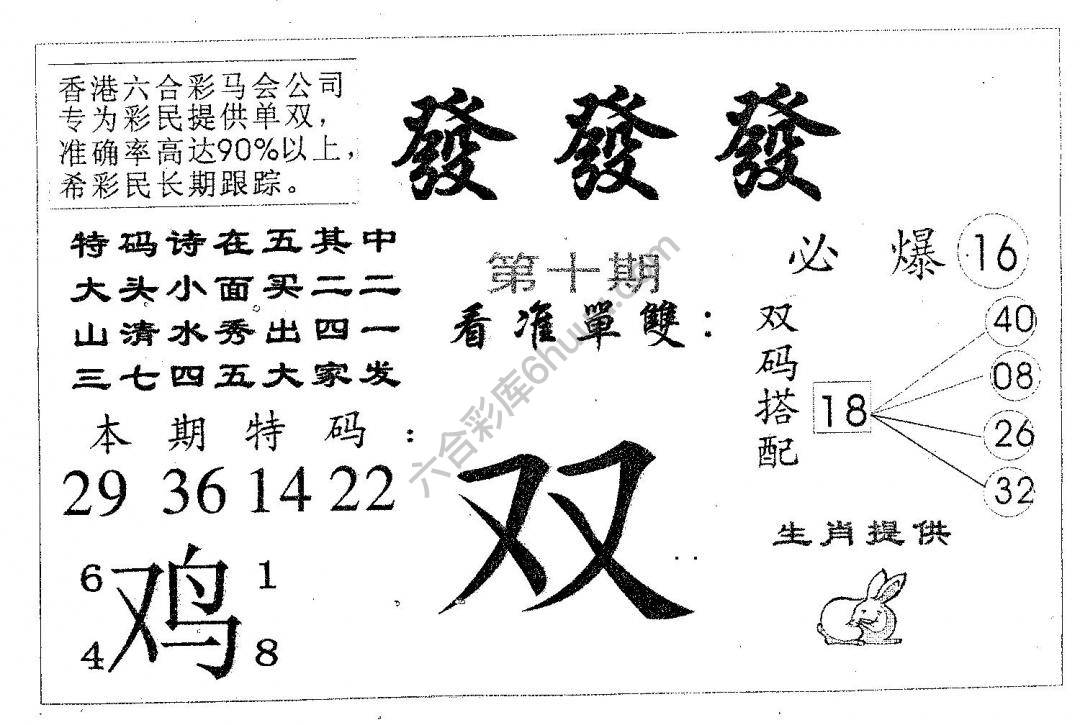 香港六合彩马会公司
专为彩民提供单双，
准确率高达90%以上，
希彩民长期跟踪。
發發發
特码诗在五其中
大头小面买二二
山清水秀出四一
三七四五大家发
第十期
看准單雙：
必爆 16
双码搭配
18
40
08
26
32
本期特码：
29 36 14 22
双
生肖提供
6 1
鸡
4 8
六合彩库6huu.com